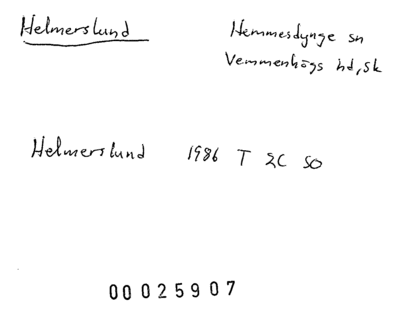 Helmerslund
Hemmesdynge sn
Vemmenhögs hd, Sk
Helmerslund 1986 T 2C SO
00025907